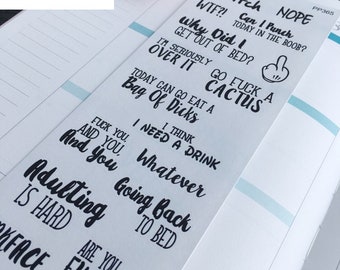 WTF?!
NOPE
Can I Punch
TODAY IN THE BOOB?
PP365
Why Did I
GET OUT OF BED?
I'M SERIOUSLY
OVER IT
GO FUCK A
CACTUS
TODAY CAN GO EAT A
Bag Of Dicks
FUCK YOU,
AND YOU,
And you
I THINK
I NEED A DRINK
Whatever
Adulting
IS HARD
Going Back
TO BED
ARE YOU